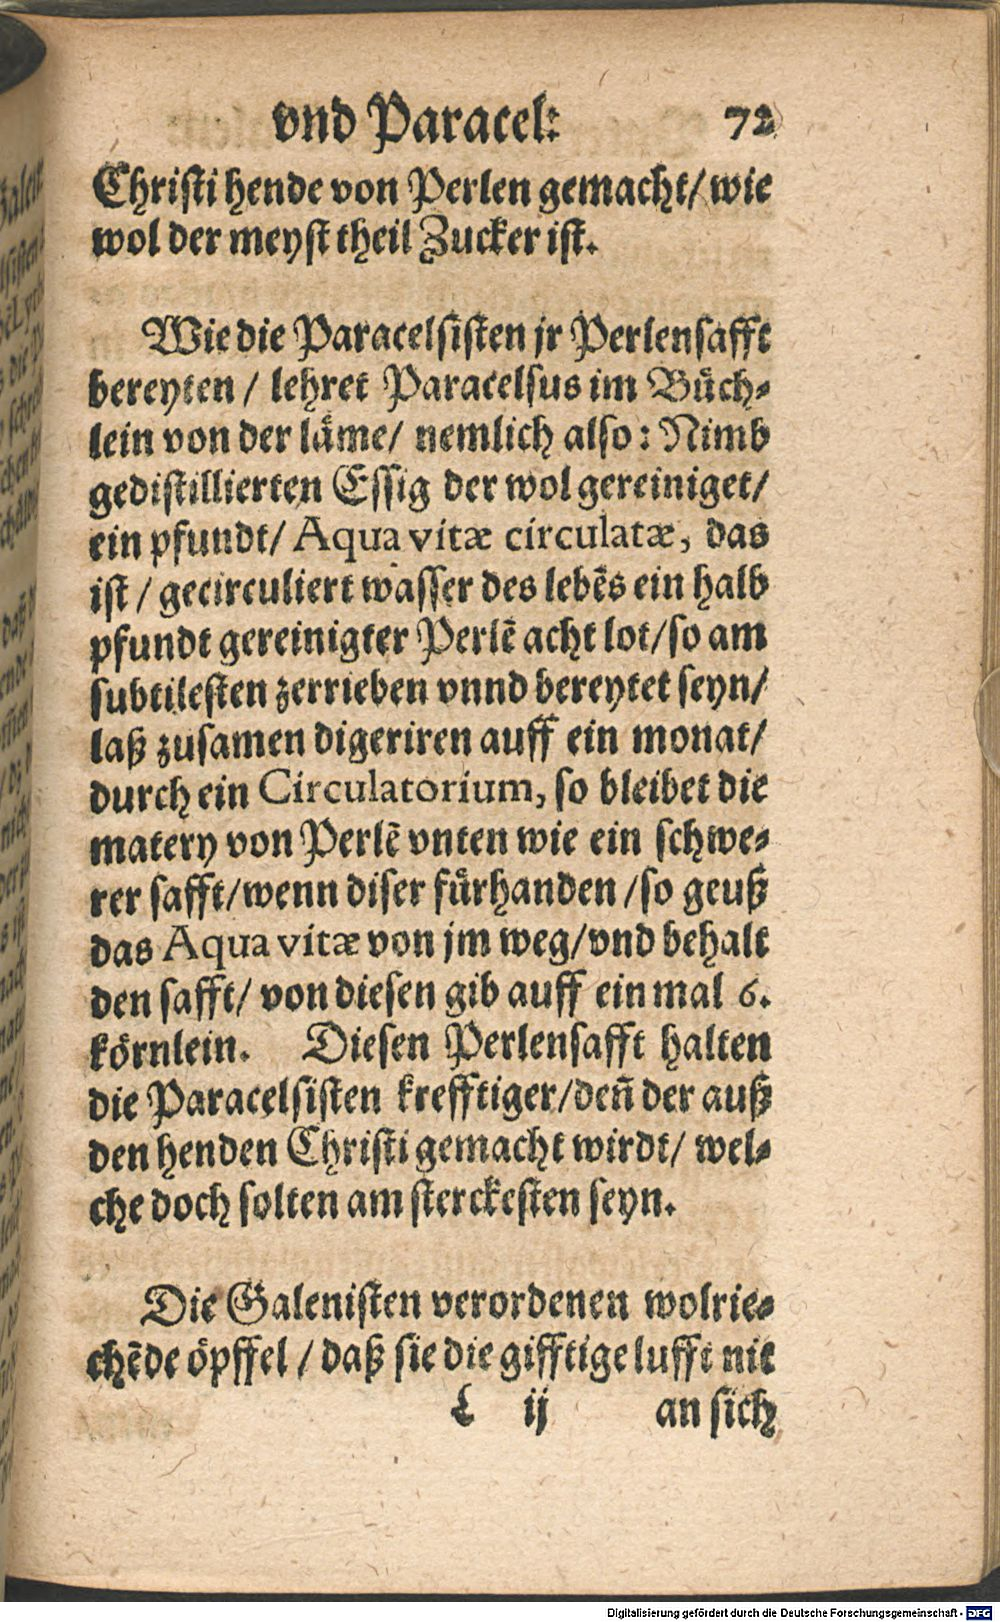 vnd Paracel: 72
Christi hende von Perlen gemacht/ wie
wol der meyst theil Zucker ist.
Wie die Paracelsisten jr Perlensafft
bereyten / lehret Paracelsus im Buͤch-
lein von der laͤme/ nemlich also: Nimb
gedistillierten Essig der wol gereiniget/
ein pfundt/ Aqua vitæ circulatæ, das
ist / gecirculiert wasser des lebēs ein halb
pfundt gereinigter Perlē acht lot/ so am
subtilesten zerrieben vnnd bereytet seyn/
laß zusamen digeriren auff ein monat/
durch ein Circulatorium, so bleibet die
matery von Perlē vnten wie ein schwe-
rer safft/ wenn diser fuͤrhanden / so geuß
das Aqua vitæ von jm weg/ vnd behalt
den safft/ von diesen gib auff ein mal 6.
koͤrnlein. Diesen Perlensafft halten
die Paracelsisten krefftiger/ deñ der auß
den henden Christi gemacht wirdt/ wel-
che doch solten am sterckesten seyn.
Die Galenisten verordenen wolrie-
chēde oͤpffel / daß sie die gifftige lufft nit
L ij an sich
Digitalisierung gefördert durch die Deutsche Forschungsgemeinschaft - DFG